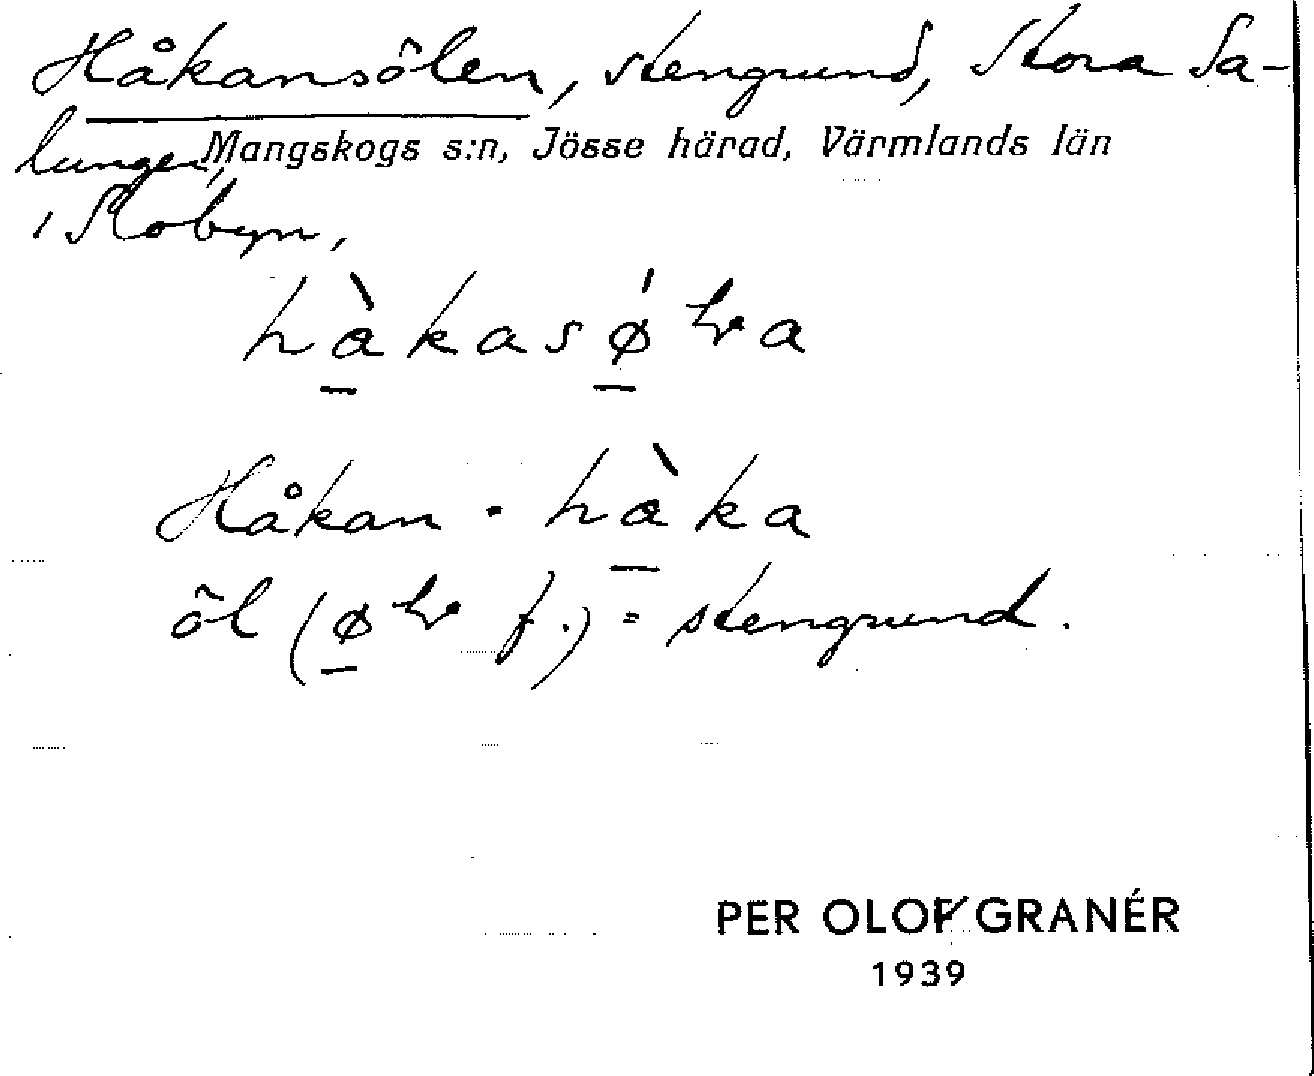 Håkansölen, stengrund, Stora Sa-
lungen, Mangskogs s:n, Jösse härad, Värmlands län
i Slobyn,
hàkasǿɽa
Håkan - hàka
öl (øɽ f.) = stengrund.
PER OLOF GRANÉR
1939